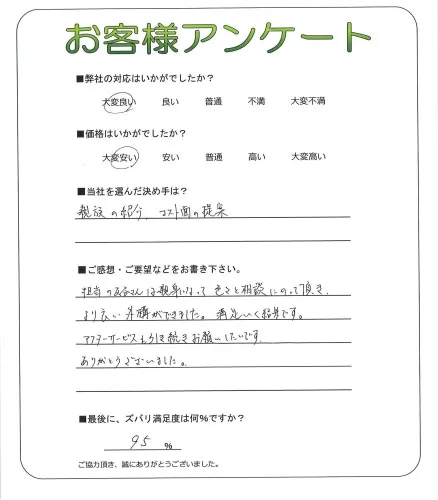 お客様アンケート
■弊社の対応はいかがでしたか?
大変良い 良い 普通 不満 大変不満
■価格はいかがでしたか?
大変安い 安い 普通 高い 大変高い
■当社を選んだ決め手は?
親族の紹介、コスト面の提案
■ご感想・ご要望などをお書き下さい。
担当の 親身になって 色々と相談にのって頂き、
より良い ができました。満足いく結果です。
アフターサービスも引き続きお願いしたいです。
ありがとうございました。
■最後に、ズバリ満足度は何%ですか?
95 %
ご協力頂き、誠にありがとうございました。